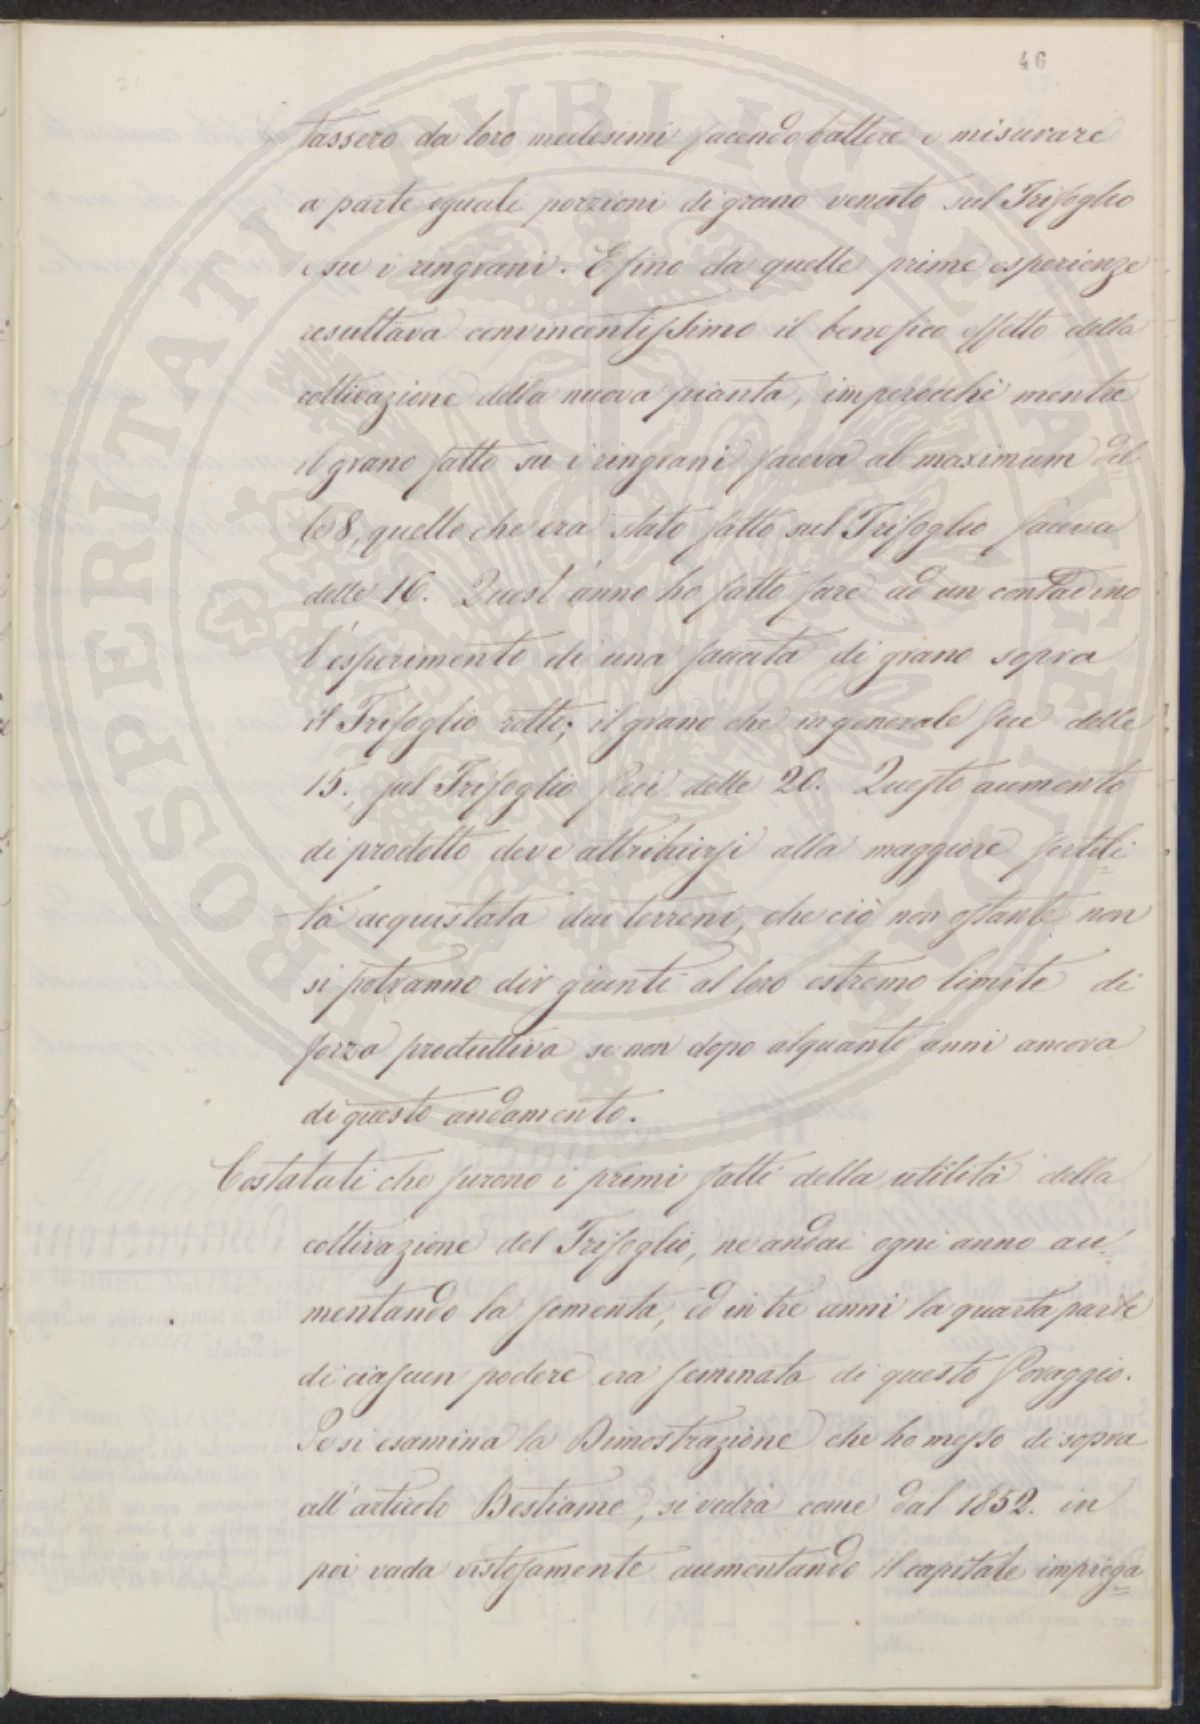 46
PROSPERITATI PUBLICAE AUGENDAE
tassero da loro medesimi facendo battere e misurare
a parte eguali porzioni di grano venuto sul Trifoglio
e su i ringrani. E fino da quelle prime esperienze
resultava convincentissimo il benefico effetto della
coltivazione della nuova pianta, imperocchè mentre
il grano fatto su i ringrani faceva al maximum del
le 8, quello che era stato fatto sul Trifoglio faceva
delle 16. Quest'anno ho fatto fare ad un contadino
l'esperimento di una faccata di grano sopra
il Trifoglio rotto; il grano che in generale fece delle
15., sul Trifoglio feci delle 20. Questo aumento
di prodotto deve attribuirsi alla maggiore fertili
tà acquistata dai terreni, che ciò non ostante non
si potranno dir giunti al loro estremo limite di
forza produttiva se non dopo alquanti anni ancora
di questo andamento.
Costatati che furono i primi fatti della utilità della
coltivazione del Trifoglio, ne andai ogni anno au=
mentando la sementa, ed in tre anni la quarta parte
di ciascun podere era seminata di questo foraggio.
Se si esamina la Dimostrazione che ho messo di sopra
all'articolo Bestiame, si vedrà come dal 1852. in
poi vada vistosamente aumentando il capitale impiega=